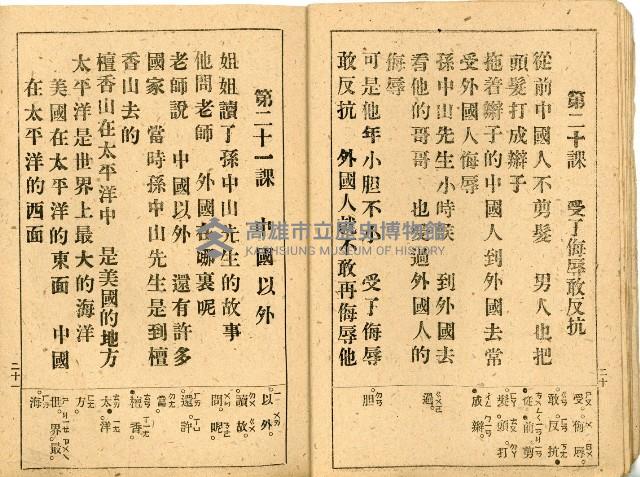 第二十課　受了侮辱敢反抗
從前中國人不剪髮　男人也把
頭髮打成辮子
拖着辮子的中國人到外國去常
受外國人侮辱
孫中山先生小時候　到外國去
看他的哥哥　也受過外國人的
侮辱
可是他年小胆不小　受了侮辱
敢反抗　外國人就不敢再侮辱他
受 侮 辱
敢 反 抗
從 前 剪
髮 頭 打
成 辮
過
胆
二十
第二十一課　中國以外
姐姐讀了孫中山先生的故事
他問老師　外國在哪裏呢
老師說　中國以外　還有許多
國家　當時孫中山先生是到檀
香山去的
檀香山在太平洋中　是美國的地方
太平洋是世界上最大的海洋
美國在太平洋的東面　中國
在太平洋的西面
以 外
讀 故
問 呢
還 許
當
檀 香
太 洋
方
世 界 最
海
高雄市立歷史博物館
KAOHSIUNG MUSEUM OF HISTORY